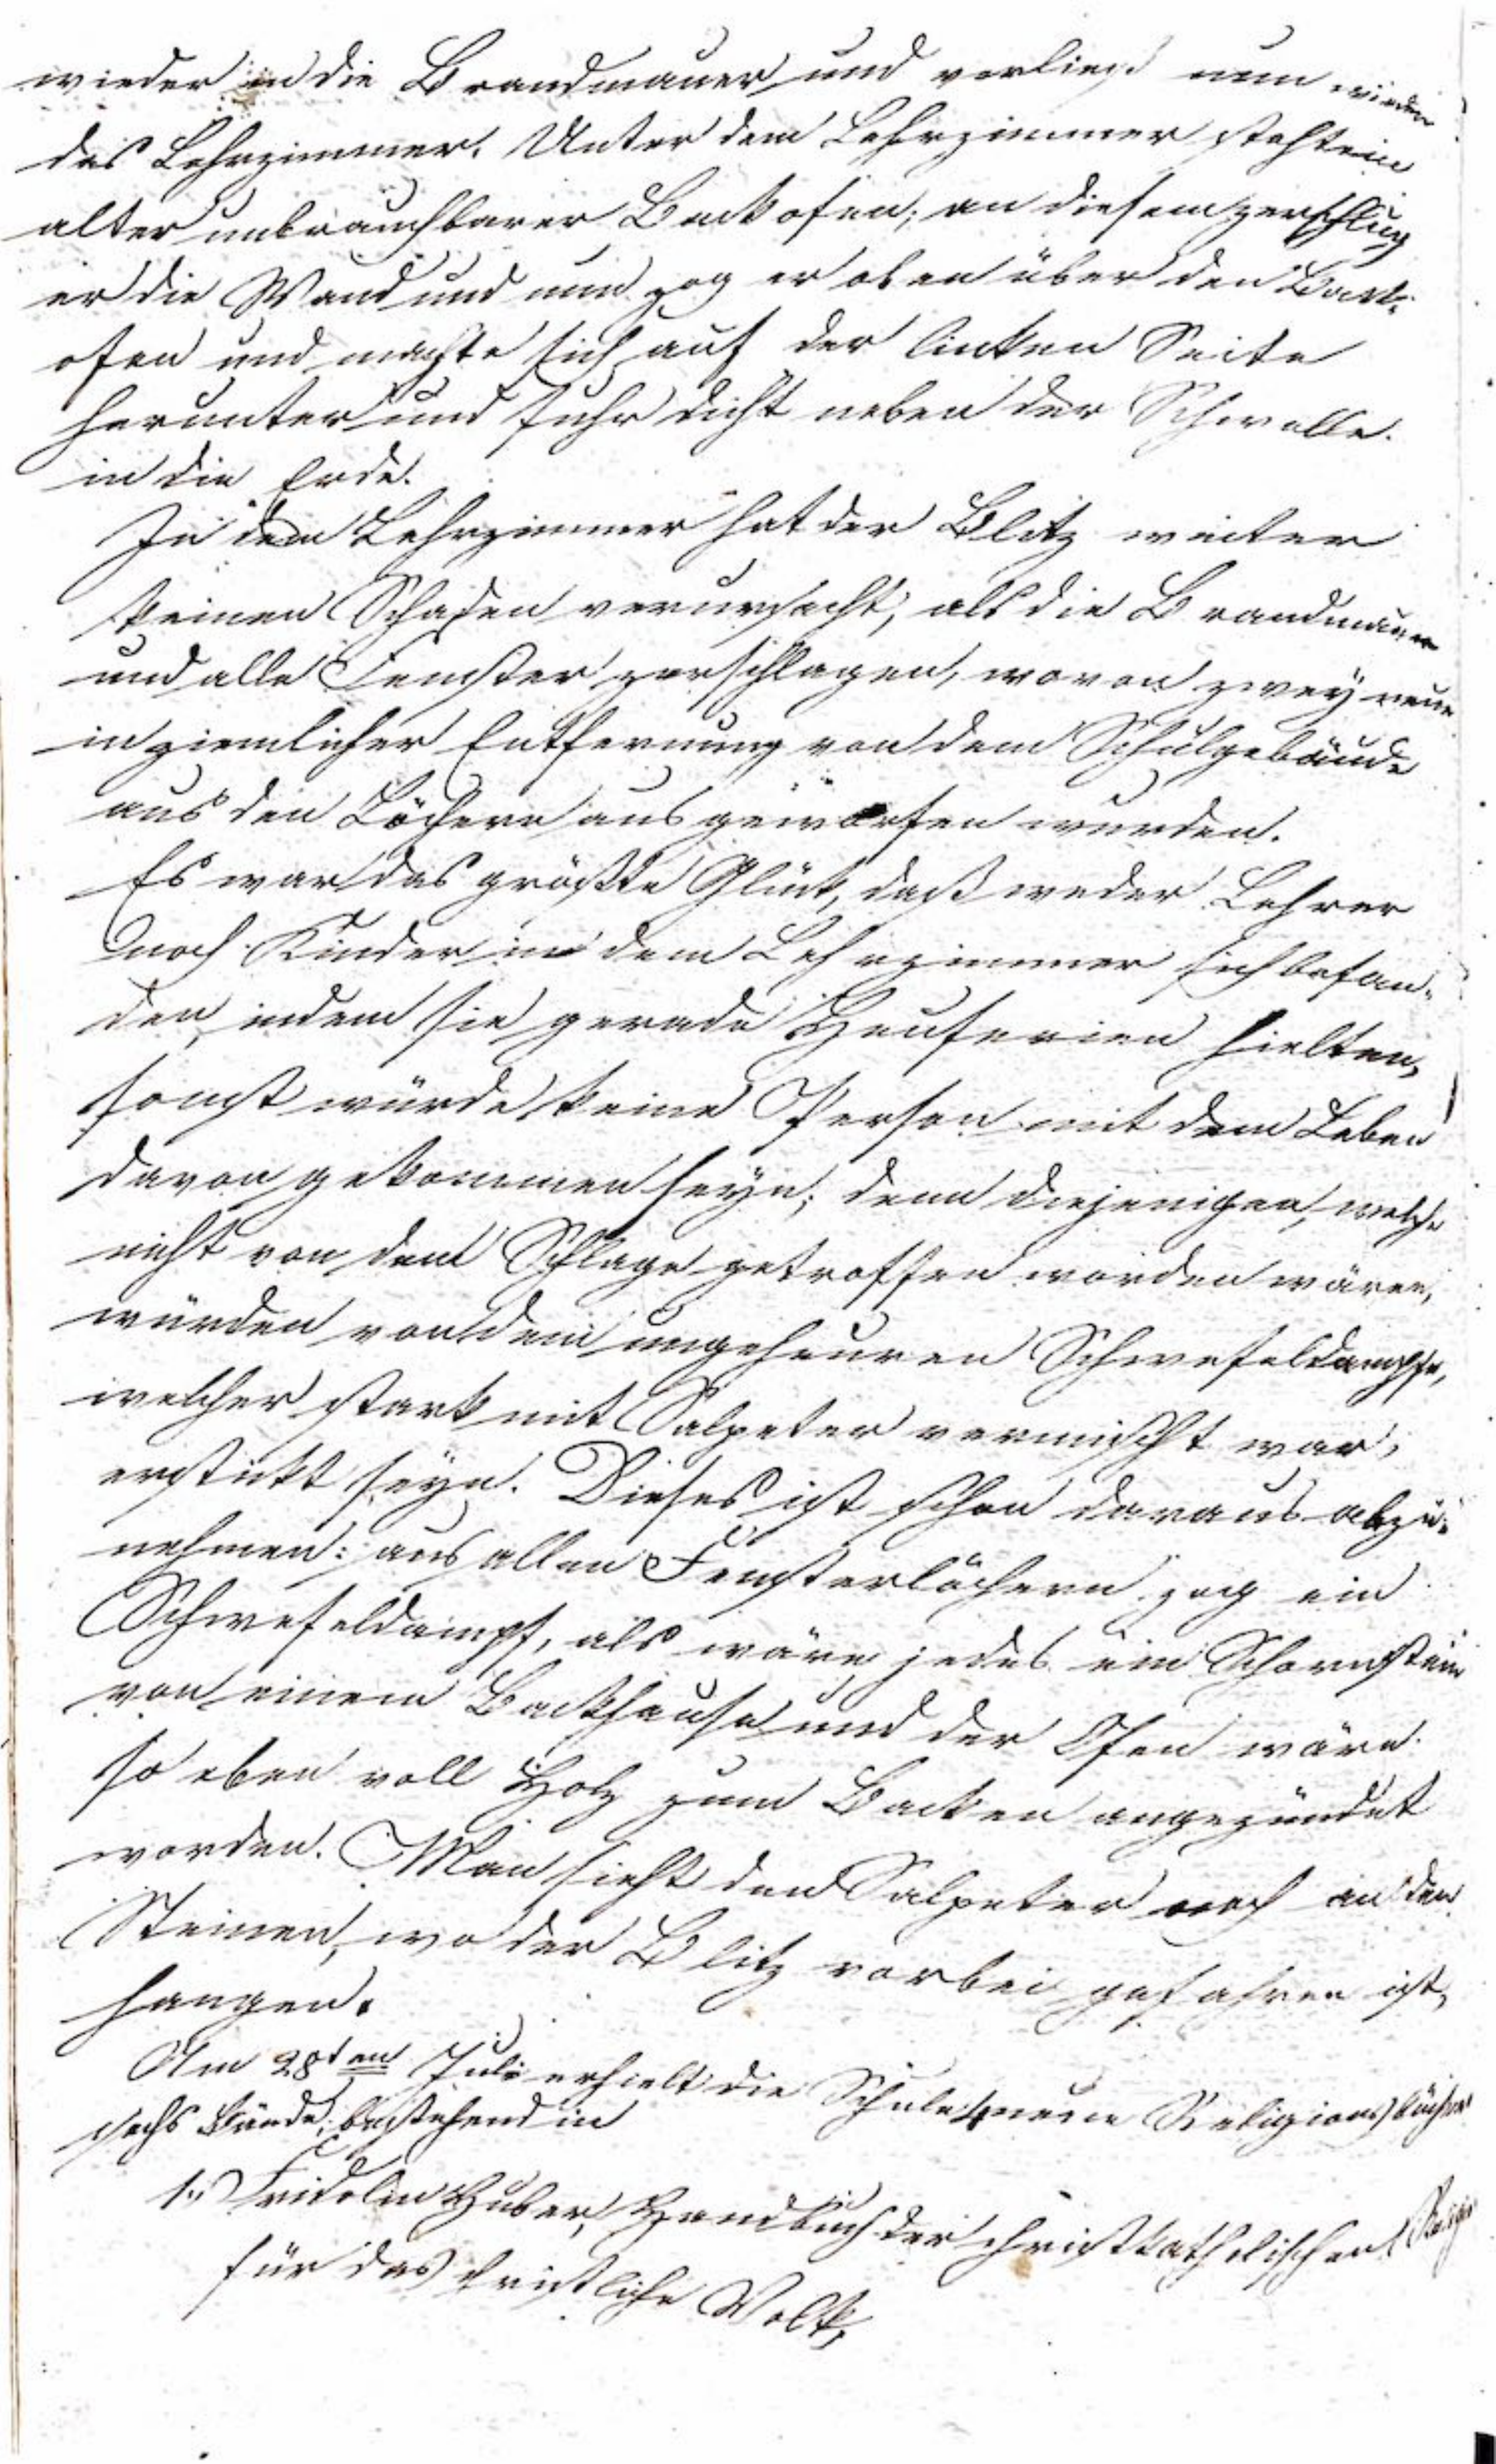 wieder in die Brandmauer und verließ nun wieder
das Lehrzimmer. Unter dem Lehrzimmer steht ein
alter unbrauchbarer Backofen; an diesem zerschlug
er die Wand und nun zog er oben über den Back-
ofen und machte sich auf der linken Seite
herunter und fuhr dicht neben der Schwelle
in die Erde.
In dem Lehrzimmer hat der Blitz weiter
keinen Schaden verursacht, als die Brandmauer
und alle Fenster zerschlagen, wovon zwey neue
in ziemlicher Entfernung von dem Schulgebäude
aus den Löchern ausgeworfen wurden.
Es war das größte Glück, daß weder Lehrer
noch Kinder in dem Lehrzimmer sich befan-
den, indem sie gerade Heuferien hielten,
sonst würde keine Person mit dem Leben
davon gekommen seyn; denn diejenigen, welche
nicht von dem Schlage getroffen worden wären,
würden von dem ungeheuren Schwefeldampfe,
welcher stark mit Salpeter vermischt war,
erstickt seyn. Dieses ist schon daraus abzu-
nehmen: aus allen Fensterlöchern zog ein
Schwefeldampf, als wäre jedes ein Schornstein
von einem Backhause und der Ofen wäre
so eben voll Holz zum Backen angezündet
worden. Man sieht den Salpeter noch an den
Steinen, wo der Blitz vorbei gefahren ist,
hangen.
Am 28ten Juli erhielt die Schule neue Religionsbücher
sechs Bände, bestehend in
1.) Fridolin Huber, Handbuch der christkatholischen Religion
für das christliche Volk,